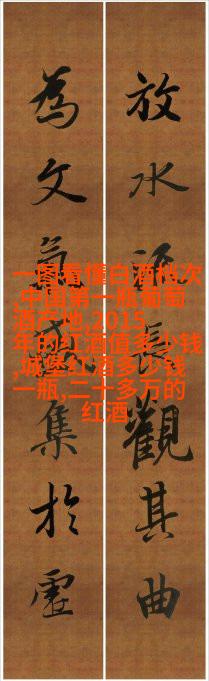 放水長觀其曲
為文氣集於虛
一图看懂白酒档次
,中国第一瓶葡萄
酒产地,2015
年的红酒值多少钱
,城堡红酒多少钱
一瓶,二十多万的
红酒